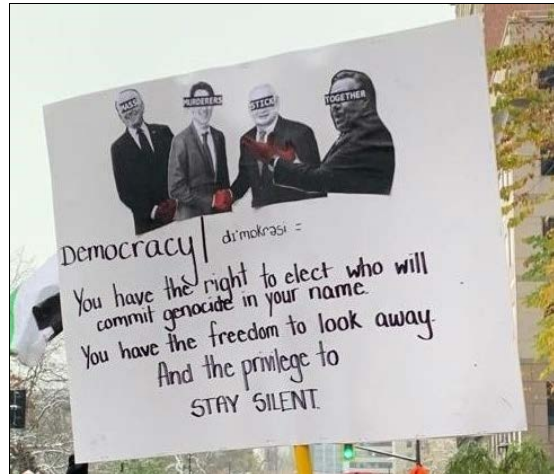 MASS MURDERERS STICK TOGETHER
Democracy| di'mokrəsi =
You have the right to elect who will
commit genocide in your name.
You have the freedom to look away.
And the privilege to
STAY SILENT.